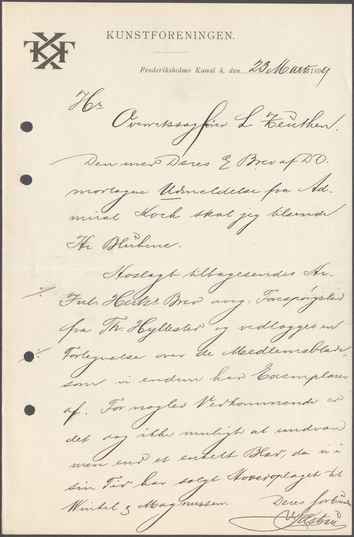 KUNSTFORENINGEN.
Frederiksholms Kanal 4, den 23 Marts 189
Hr
Overretssagfører L Zeuthen.
Den med Deres Brev af D.D.
modtagne Udmeldelse fra Ad-
miral Koch skal jeg
Hr
Hoslagt tilbagesendes Hr.
Brev ang. Forespørgsler
fra Th. Hyllested og vedlægges en
Fortegnelse over de Medlemsblade,
som vi endnu har Exemplarer
af. For nogles Vedkommende er
det dog ikke muligt at undvære
mere end et enkelt Blad, da vi i
sin Tid har solgt Hovedoplaget til
Winkel & Magnussen.
Deres forbindtl.